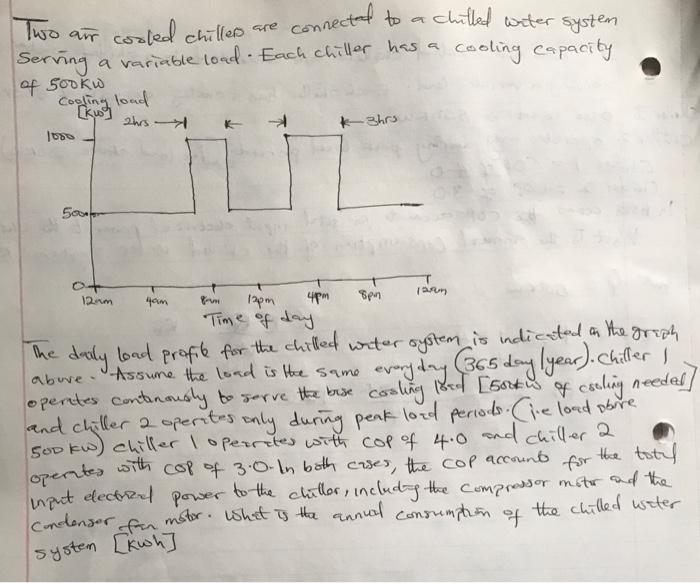 Two air cooled chillers are connected to a chilled water system
Serving a variable load. Each chiller has a cooling capacity
of 500KW
cooling load
[kw]
2hrs
3hrs
1000
500
0
12am 4am 8am 12pm 4pm 8pm 12am
Time of day
The daily load profile for the chilled water system is indicated in the graph
above. Assume the load is the same everyday (365 day/year). Chiller 1
operates continously to serve the base cooling load [500kw of cooling needed]
and chiller 2 operates only during peak load periods. (i.e load above
500 kw) chiller 1 operates with COP of 4.0 and chiller 2
operates with COP of 3.0. In both cases, the COP accounts for the total
input electrical power to the chiller, including the compressor motor and the
condenser fan motor. What is the annual consumption of the chilled water
system [kwh]